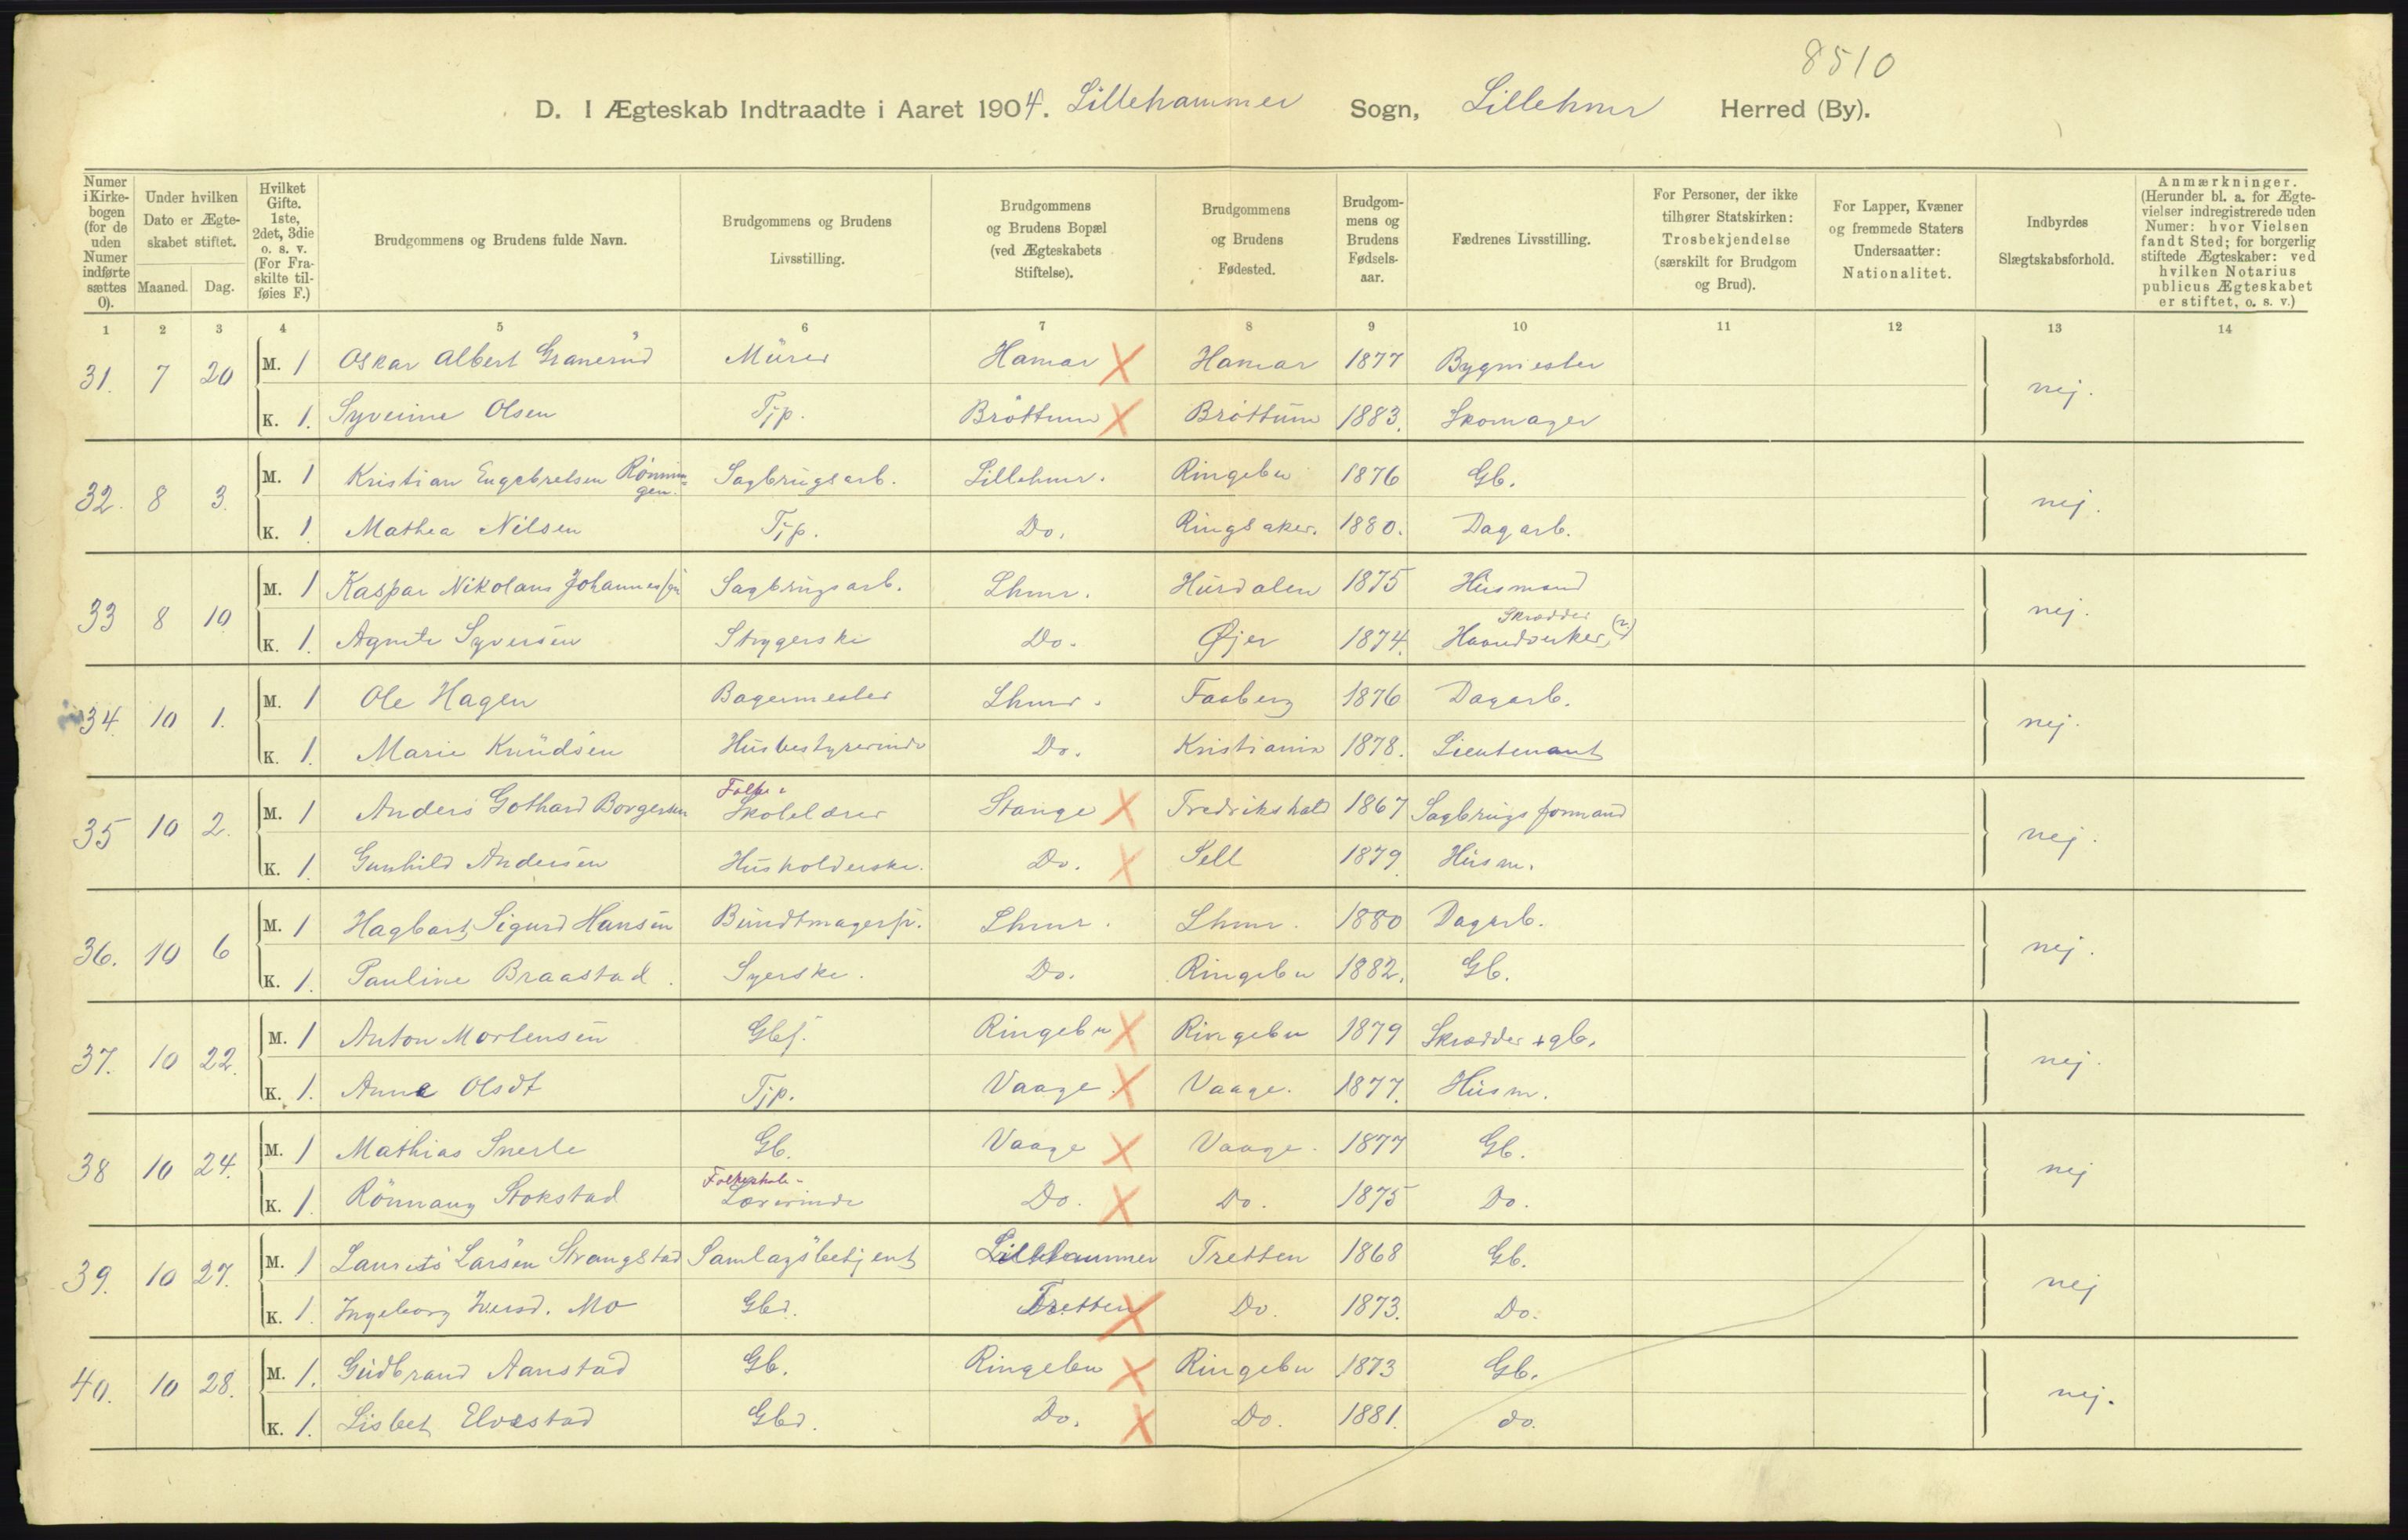 8510
D. I Ægteskab Indtraadte i Aaret 1904. Lillehammer Sogn, Lillehmr Herred (By).
Numer i Kirkebogen (for de uden Numer indførte sættes 0). | Under hvilken Dato er Ægteskabet stiftet. Maaned. Dag. | Hvilket Gifte. 1ste, 2det, 3die o. s. v. (For Fraskilte tilføies F.) | Brudgommens og Brudens fulde Navn. | Brudgommens og Brudens Livsstilling. | Brudgommens og Brudens Bopæl (ved Ægteskabets Stiftelse). | Brudgommens og Brudens Fødested. | Brudgommens og Brudens Fødselsaar. | Fædrenes Livsstilling. | For Personer, der ikke tilhører Statskirken: Trosbekjendelse (særskilt for Brudgom og Brud). | For Lapper, Kvæner og fremmede Staters Undersaatter: Nationalitet. | Indbyrdes Slægtskabsforhold. | Anmærkninger. (Herunder bl. a. for Ægtevielser indregistrerede uden Numer: hvor Vielsen fandt Sted; for borgerlig stiftede Ægteskaber: ved hvilken Notarius publicus Ægteskabet er stiftet, o. s. v.)
1 2 3 4 5 6 7 8 9 10 11 12 13 14
31. 7 20 M. 1 Oskar Albert Granerud Murer Hamar X Hamar 1877 Bygmester nej.
K. 1. Syverine Olsen Tjp. Brøttum X Brøttum 1883. Skomager
32. 8 3. M. 1 Kristian Engebretsen Rønningen. Sagbrugsarb. Lillehmr. Ringebu 1876 Gb. nej.
K. 1. Mathea Nilsen Tjp. Do. Ringsaker. 1880. Dagarb.
33 8 10 M. 1 Kaspar Nikolaus Johannessen Sagbrugsarb. Lhmr. Hurdalen 1875 Husmand nej.
K. 1. Agnete Syversen Strygerske Do. Øjer 1874. Skrædder Haandverker (?)
34. 10 1. M. 1 Ole Hagen Bagermester Lhmr. Faaberg 1876 Dagarb. nej.
K. 1. Marie Knudsen Husbestyrerinde Do. Kristiania 1878. Lieutenant
35 10 2. M. 1 Anders Gothard Borgersen Folke- Skolelærer Stange X Fredrikshald 1867 Sagbrugsformand nej.
K. 1. Gunhild Andersen Husholderske. Do. X Sell 1879. Husm.
36. 10 6 M. 1 Hagbart Sigurd Hansen Bundtmagersv. Lhmr. Lhmr. 1880 Dagarb. nej.
K. 1. Pauline Braastad Syerske. Do. Ringebu 1882. Gb.
37. 10 22. M. 1 Anton Mortensen Gbs. Ringebu X Ringebu 1879 Skrædder + gb. nej.
K. 1. Anna Olsdt Tjp. Vaage X Vaage. 1877. Husm.
38 10 24. M. 1 Mathias Snerle Gb. Vaage X Vaage. 1877 Gb. nej
K. 1. Rønnaug Stokstad Folkeskole- Lærerinde Do. X Do. 1875 Do.
39. 10 27. M. 1 Laurits Larsen Strangstad Samlagsbetjent Lillehammer Tretten 1868 Gb. nej
K. 1. Ingeborg Iversd. Mo Gbd. Tretten X Do. 1873. Do.
40. 10 28. M. 1. Gudbrand Aanstad Gb. Ringebu X Ringebu 1873 Gb. nej.
K. 1. Lisbet Elvestad Gbd. Do. X Do. 1881. do.